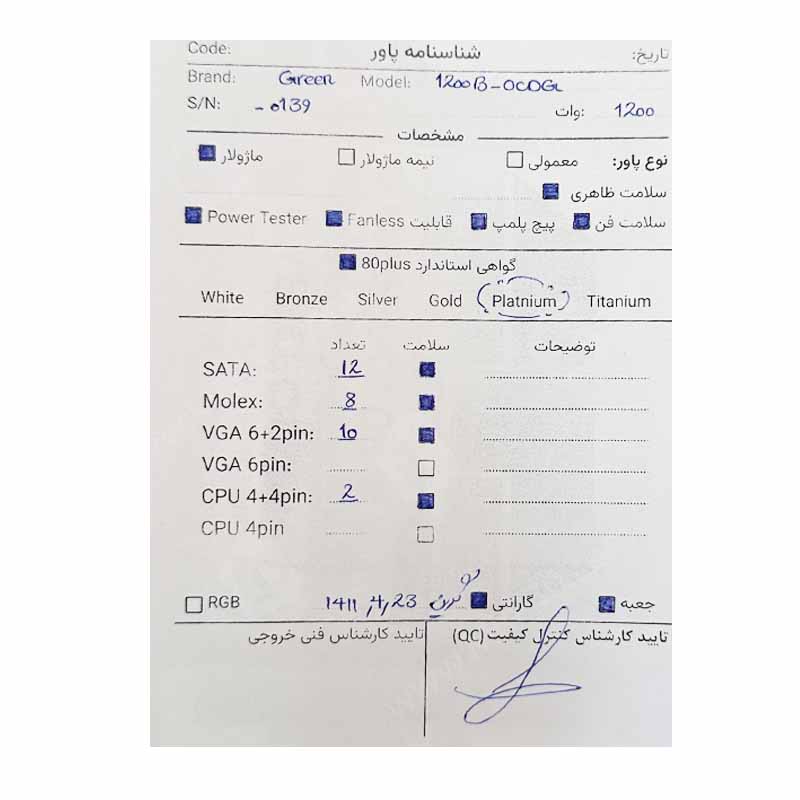 Code: شناسنامه پاور تاریخ:
Brand: Green Model: 1200B-OCDGL
S/N: -0139 وات: 1200
مشخصات
نوع پاور: معمولی نیمه ماژولار ماژولار
سلامت ظاهری
سلامت فن پیچ پلمپ قابلیت Fanless Power Tester
گواهی استاندارد 80plus
White Bronze Silver Gold Platnium Titanium
تعداد سلامت توضیحات
SATA: 12
Molex: 8
VGA 6+2pin: 10
VGA 6pin:
CPU 4+4pin: 2
CPU 4pin
جعبه گارانتی گرین 1411,4,23 RGB
تایید کارشناس کنترل کیفیت (QC) تایید کارشناس فنی خروجی